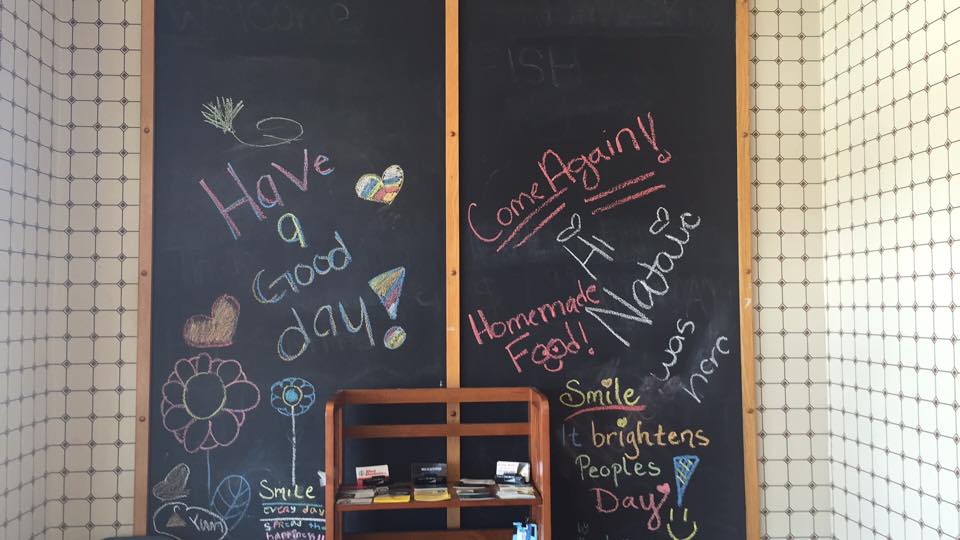 Welcome
Have
a
Good
day!
Smile
every day
spread the
happiness!!
Yum
FISH
Come Again!
Hi
Natalie
was
here
Homemade
Food!
Smile
It brightens
Peoples
Day
by